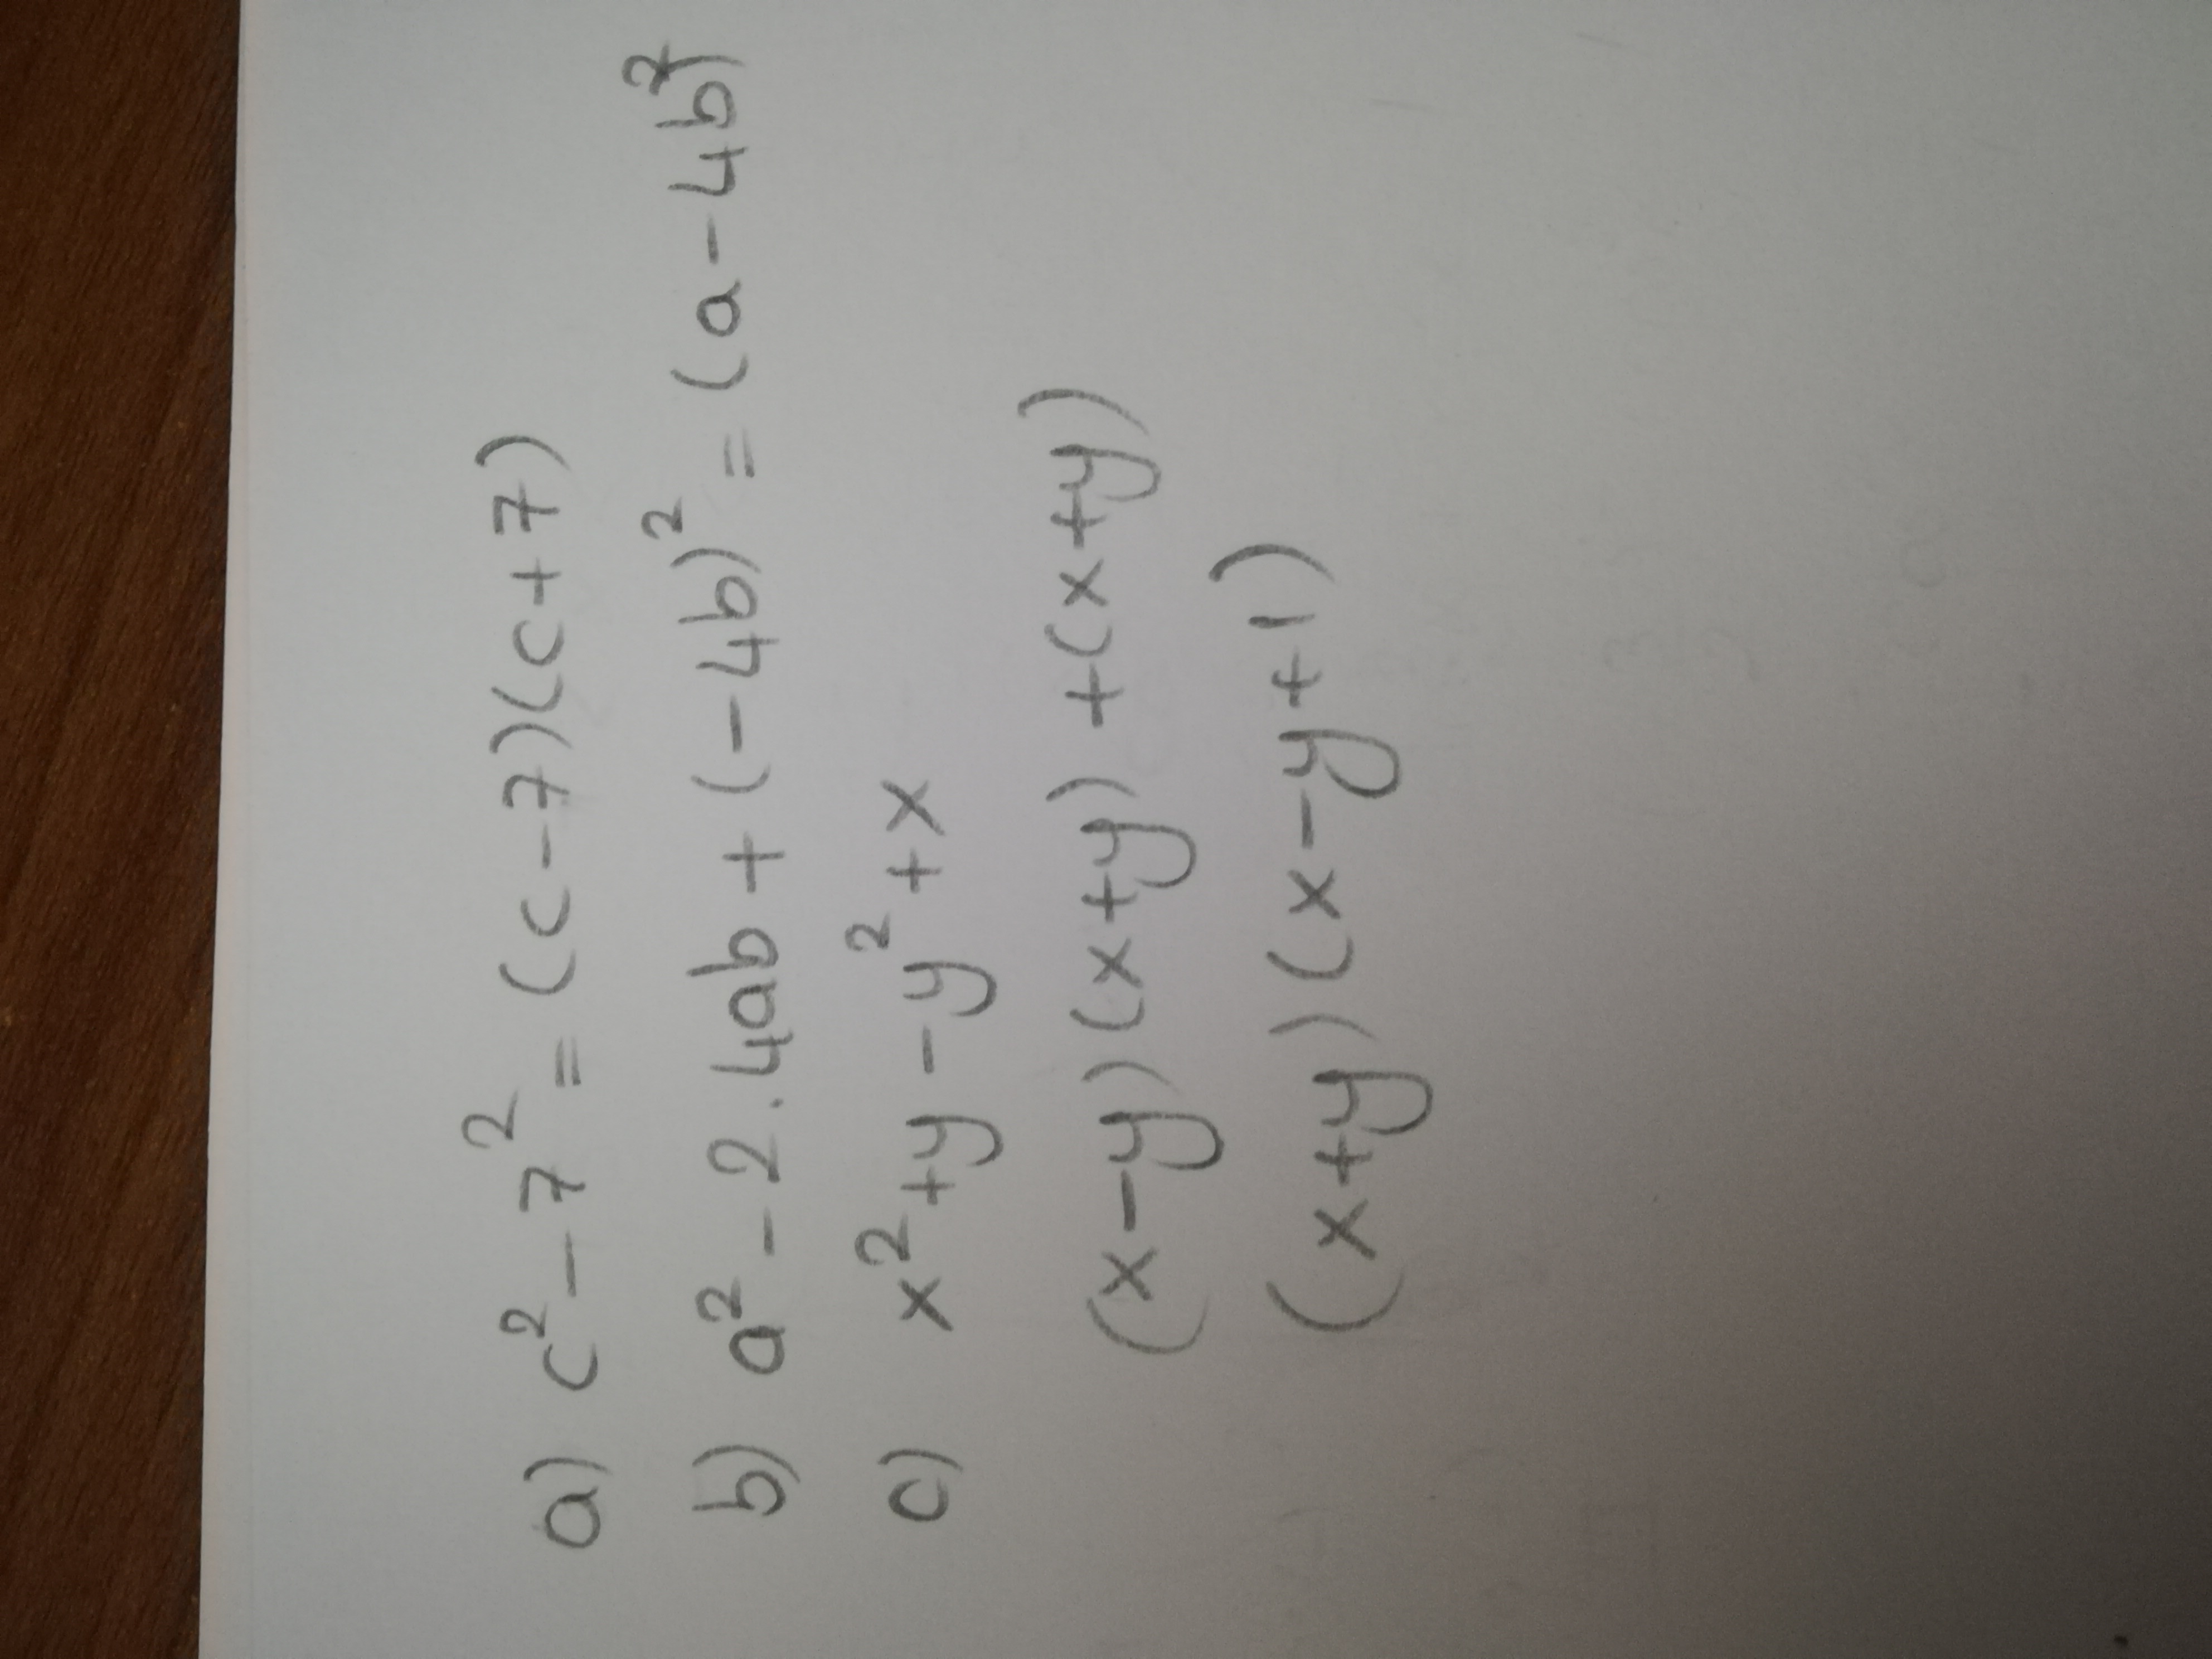 a) c² - 7² = (c - 7)(c + 7)
b) a² - 2 . 4ab + (-4b)² = (a - 4b)²
c) x² + y - y² + x
(x - y)(x + y) + (x + y)
(x + y)(x - y + 1)